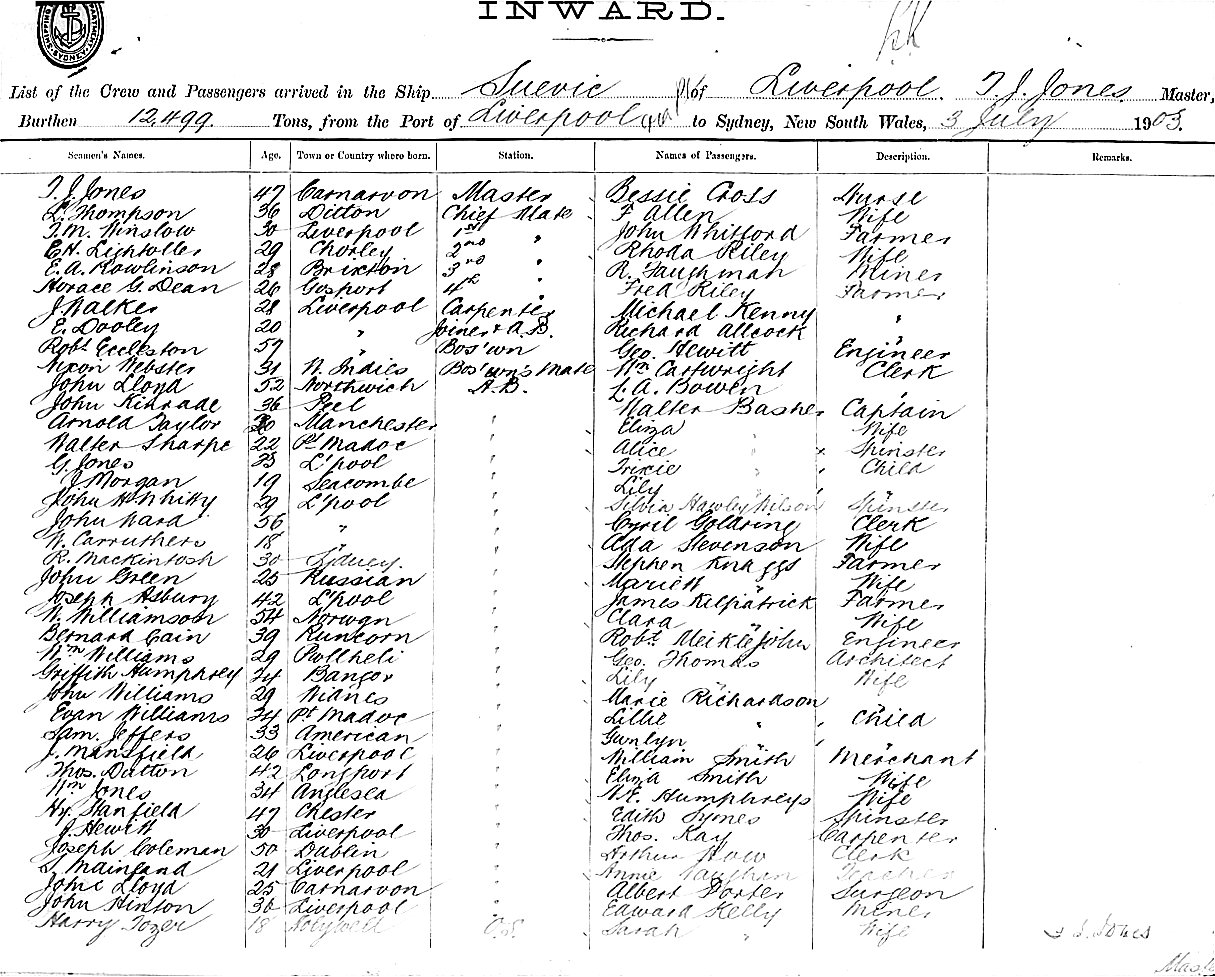 INWARD.
SHIPPING DEPARTMENT SYDNEY
List of the Crew and Passengers arrived in the Ship Suevic of Liverpool. T. J. Jones Master,
Burthen 12,499. Tons, from the Port of Liverpool to Sydney, New South Wales, 3 July 1903.
Seamen's Names. Age. Town or Country where born. Station. Names of Passengers. Description. Remarks.
T. J. Jones 47 Carnarvon Master Bessie Cross Nurse
L. Thompson 36 Ditton Chief Mate F Allen Wife
T. M. Winslow 30 Liverpool 1st " John Whitford Farmer
C. H. Lightoller 29 Chorley 2nd " Rhoda Riley Wife
E. A. Rowlinson 28 Brixton 3rd " R. Faughman Miner
Horace G. Dean 26 Gosport 4th " Fred Riley Farmer
J. Walker 28 Liverpool Carpenter Michael Kenny "
E. Dooley 20 " Joiner & A.B. Richard Allcock "
Robt Eccleston 57 " Bos'wn Geo. Hewitt Engineer
Nixon Webster 31 W. Indies Bos'wn's Mate Wm Cartwright Clerk
John Lloyd 52 Northwich A.B. L. A. Bowen "
John Kinrade 36 Peel " Walter Basher Captain
Arnold Taylor 20 Manchester " Eliza " Wife
Walter Sharpe 22 Pt Madoc " Alice " Spinster
G. Jones 23 L'pool " Trixie " Child
J Morgan 19 Seacombe " Lily " "
John H. Whitty 29 L'pool " Silvia Hawley Wilson Spinster
John Ward 56 " " Cyril Goldring Clerk
W. Carruthers 18 " " Ada Stevenson Wife
R. Mackintosh 30 Sydney. " Stephen Knaggs Farmer
John Green 25 Russian " Mariett " Wife
Joseph Asbury 42 L'pool " James Kilpatrick Farmer
W. Williamson 54 Norwgn " Clara " Wife
Bernard Cain 39 Runcorn " Robt. Meiklejohn Engineer
Wm Williams 29 Pwllheli " Geo. Thomas Architect
Griffith Humphrey 24 Bangor " Lily " Wife
John Williams 29 Widnes " Marie Richardson "
Evan Williams 34 Pt Madoc " Lillie " Child
Sam. Jeffers 33 American " Gwnlyn " "
J. Mansfield 26 Liverpool " William Smith Merchant
Thos. Dutton 42 Longport " Eliza Smith Wife
Wm Jones 34 Anglesea " W. E. Humphreys Wife
Hy. Stanfield 47 Chester " Edith Symes Spinster
J. Hewitt 30 Liverpool " Thos. Kay Carpenter
Joseph Coleman 50 Dublin " Arthur How Clerk
S. Mainland 21 Liverpool " Annie Vaughan Teacher
John Lloyd 25 Carnarvon " Albert Porter Surgeon
John Hinton 36 Liverpool " Edward Kelly Miner
Harry Tozer 18 Holywell O.S. Sarah " Wife T J. Jones
Master